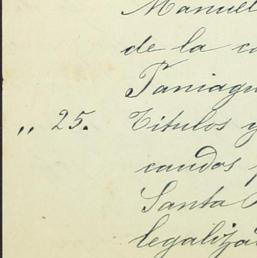 Manuel
de la c
Paniagu
„ 25. Titulos y
caudos
Santa
legaliza